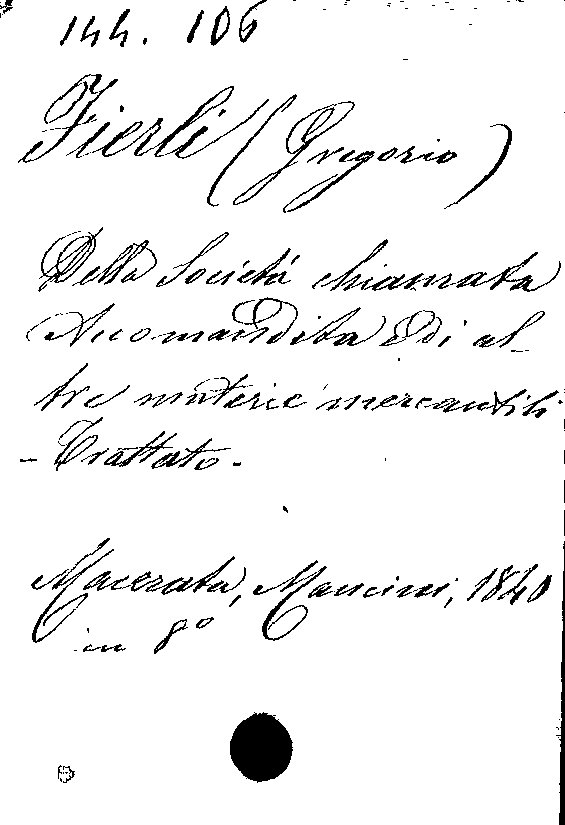 144. 106
Fierli (Gregorio)
Della Società chiamata
Accomandita e di al-
tre materie mercantili
- Trattato -
Macerata, Mancini, 1840
in 8º